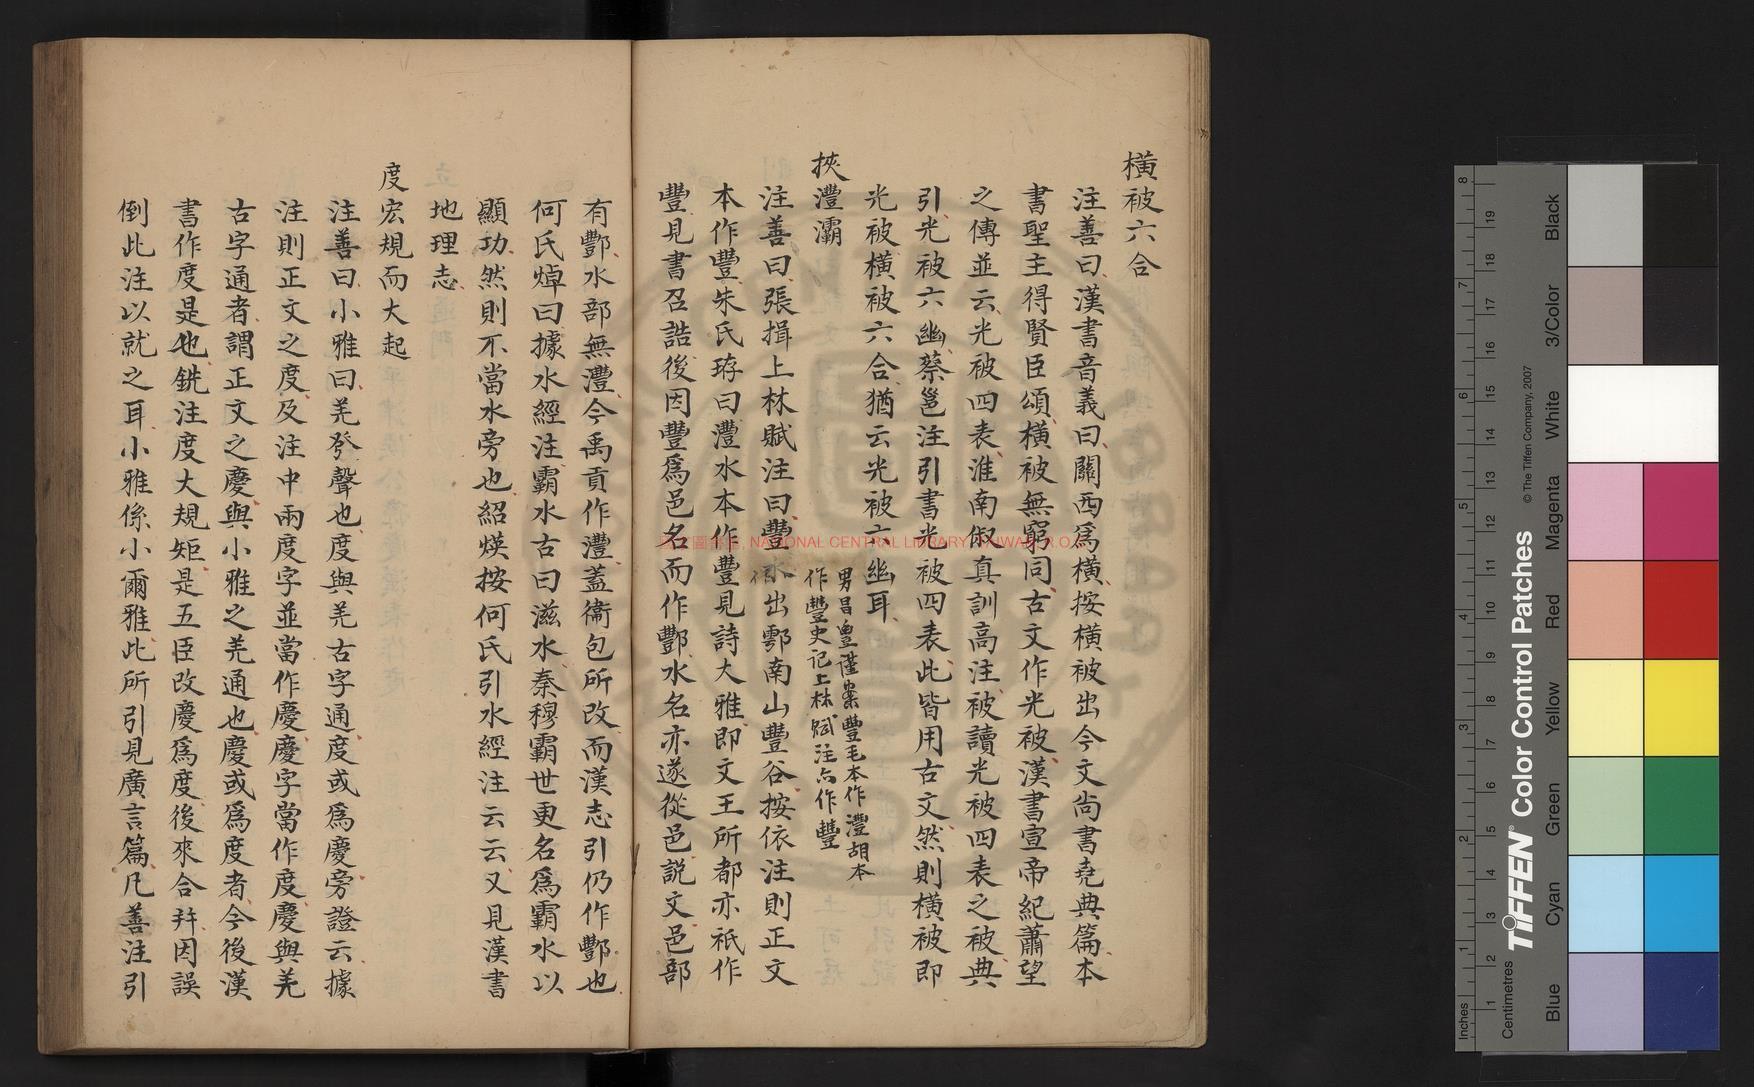 橫被六合
注善曰漢書音義曰關西爲橫按橫被出今文尚書堯典篇本
書聖主得賢臣頌橫被無窮同古文作光被漢書宣帝紀蕭望
之傳並云光被四表淮南俶真訓高注被讀光被四表之被典
引光被六幽蔡邕注引書光被四表此皆用古文然則橫被即
光被橫被六合猶云光被六幽耳
挾灃灞
男昌豊謹案豐毛本作灃胡本
作豐史記上林賦注亦作豐
注善曰張揖上林賦注曰豐水出鄠南山豐谷按依注則正文
本作豐朱氏珔曰灃水本作豐見詩大雅即文王所都亦祇作
豐見書召誥後因豐爲邑名而作酆水名亦遂從邑説文邑部
有酆水部無灃今禹貢作灃蓋衞包所改而漢志引仍作酆也
何氏焯曰據水經注霸水古曰滋水秦穆霸世更名爲霸水以
顯功然則不當水旁也紹煐按何氏引水經注云云又見漢書
地理志
度宏規而大起
注善曰小雅曰羌發聲也度與羌古字通度或爲慶旁證云據
注則正文之度及注中兩度字並當作慶慶字當作度慶與羌
古字通者謂正文之慶與小雅之羌通也慶或爲度者今後漢
書作度是也銑注度大規矩是五臣改慶爲度後來合幷因誤
倒此注以就之耳小雅係小爾雅此所引見廣言篇凡善注引
國家圖書館, NATIONAL CENTRAL LIBRARY, TAIWAN R.O.C
TIFFEN® Color Control Patches
© The Tiffen Company, 2007
Centimetres
Inches
1 2 3 4 5 6 7 8 9 10 11 12 13 14 15 16 17 18 19
1 2 3 4 5 6 7 8
Blue
Cyan
Green
Yellow
Red
Magenta
White
3/Color
Black